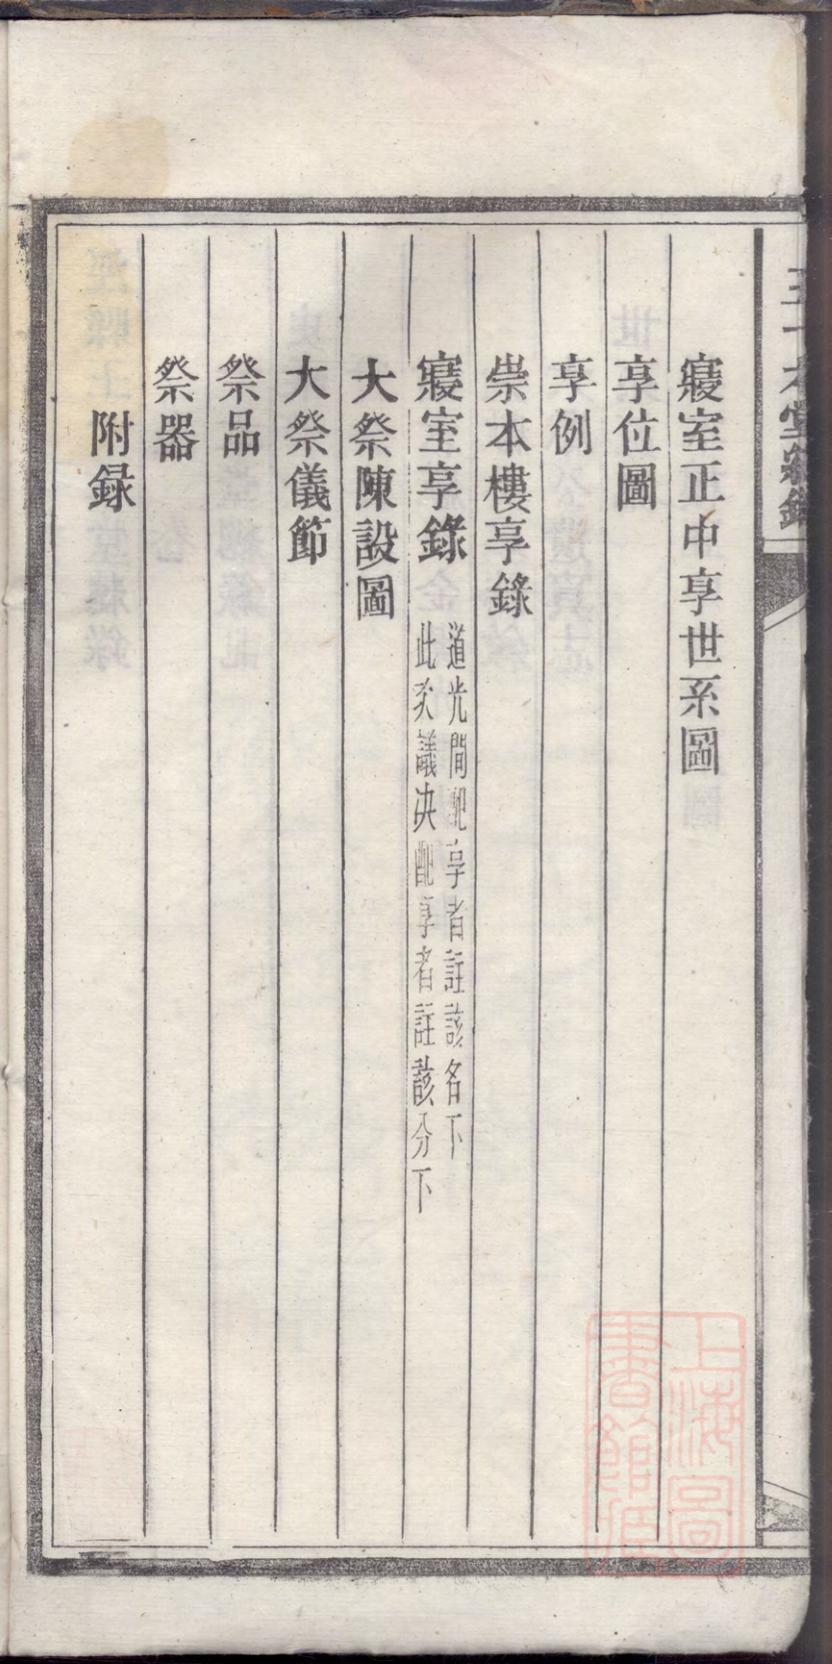 寢室正中享世系圖
享位圖
享例
崇本樓享錄
寢室享錄
道光間配享者註該名下
此次議決配享者註該分下
大祭陳設圖
大祭儀節
祭品
祭器
附録
上海圖書館藏